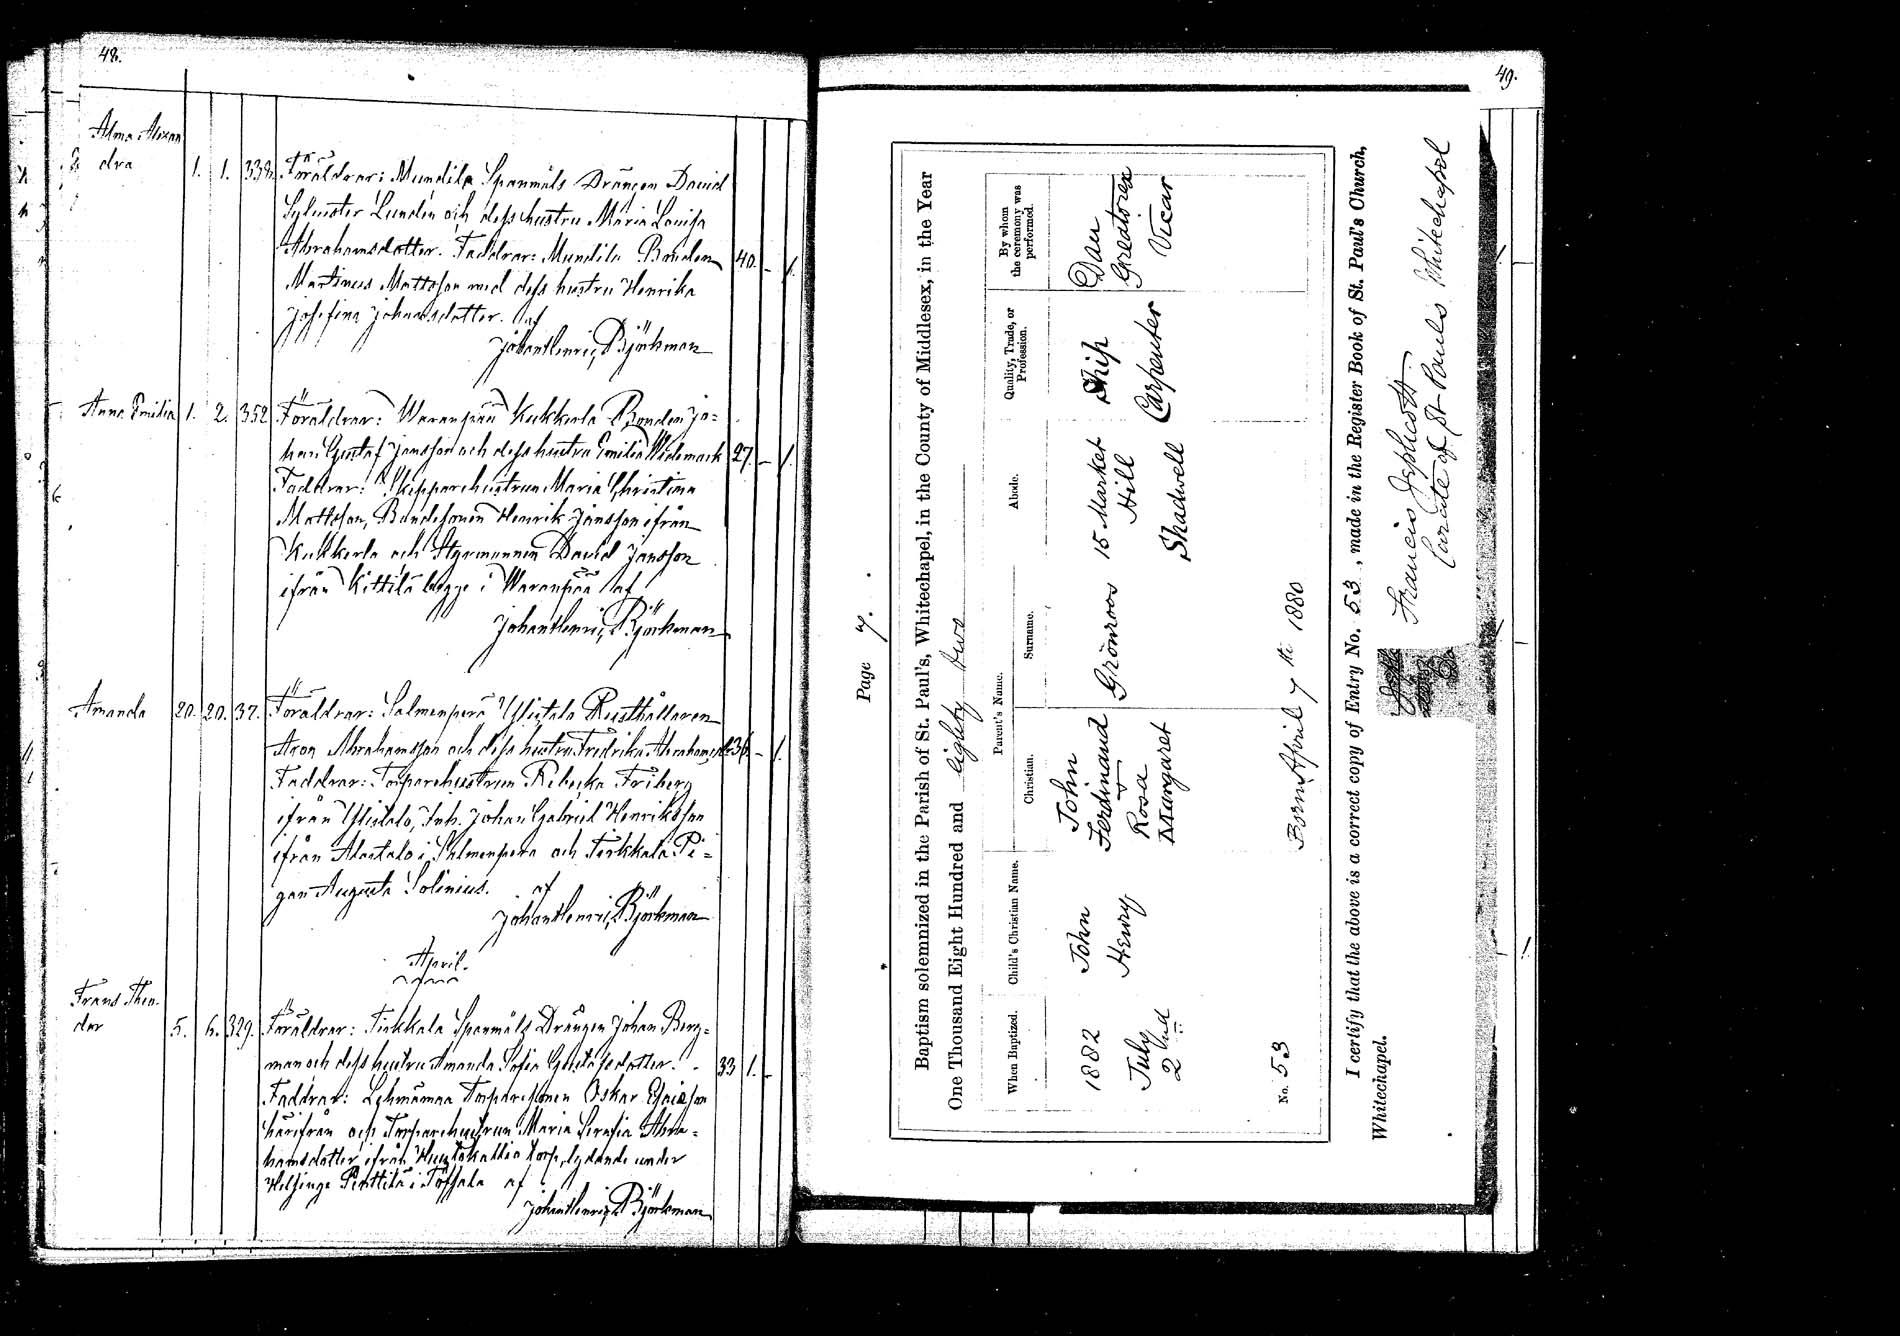 48.
Alma Alexan
dra 1. 1. 338. Föräldrar: Mundila Spanmåls Drängen David
Sylvester Lundén och dess hustru Maria Lovisa
Abrahamsdotter. Faddrar: Mundila Bonden 40. – 1.
Martinus Mattsson med dess hustru Henrika
Josefina Johansdotter. af
Johan Henric Björkman
Anna Emilia 1. 2. 352 Föräldrar: Waranpää Kukkerla Bonden Jo=
han Gustaf Jansson och dess hustru Emilia Widemark 27. – 1.
Faddrar: Skepparehustrun Maria Christina
Mattsson, Bondesonen Henrik Jansson ifrån
Kukkerla och Styrmannen David Jansson
ifrån Kittilä bagge i Waranpää af
Johan Henric Björkman
Amanda 20. 20. 37. Föräldrar: Salmenperä Ylistalo Rusthållaren
Aron Abrahamsson och dess hustru Fredrika Abrahamsdr 36. – 1.
Faddrar: Torparehustrun Rebecka Friberg
ifrån Ylistalo, Inh. Johan Gabriel Henriksson
ifrån Alastalo i Salmenperä och Tirkkala Pi=
gan Augusta Solinius. af
Johan Henric Björkman
April.
Frans Theo-
dor 5. 6. 329. Föräldrar: Tirkkala Spanmåls Drängen Johan Berg=
man och dess hustru Amanda Sofia Gustafsdotter. 33 1. –
Faddrar: Lehmämaa Torparesonen Oskar Esaiasson
härifrån och Torparehustrun Maria Serafia Abra=
hamsdotter ifrån torp, lydande under
Helsinge Penttilä i Töfsala af
Johan Henric Björkman
49.
Page 7.
Baptism solemnized in the Parish of St. Paul's, Whitechapel, in the County of Middlesex, in the Year
One Thousand Eight Hundred and eighty two
When Baptized. Child's Christian Name. Parent's Name. Abode. Quality, Trade, or Profession. By whom the ceremony was performed.
Christian. Surname.
1882 John John Grönroos 15 Market Ship Dan
July Henry Ferdinand Hill Carpenter Greatorex
2nd + Shadwell Vicar
Rosa
Margaret
No. 53 Born April 7th 1880
I certify that the above is a correct copy of Entry No. 53, made in the Register Book of St. Paul's Church,
Whitechapel.
Francis
Curate of St Pauls Whitechapel